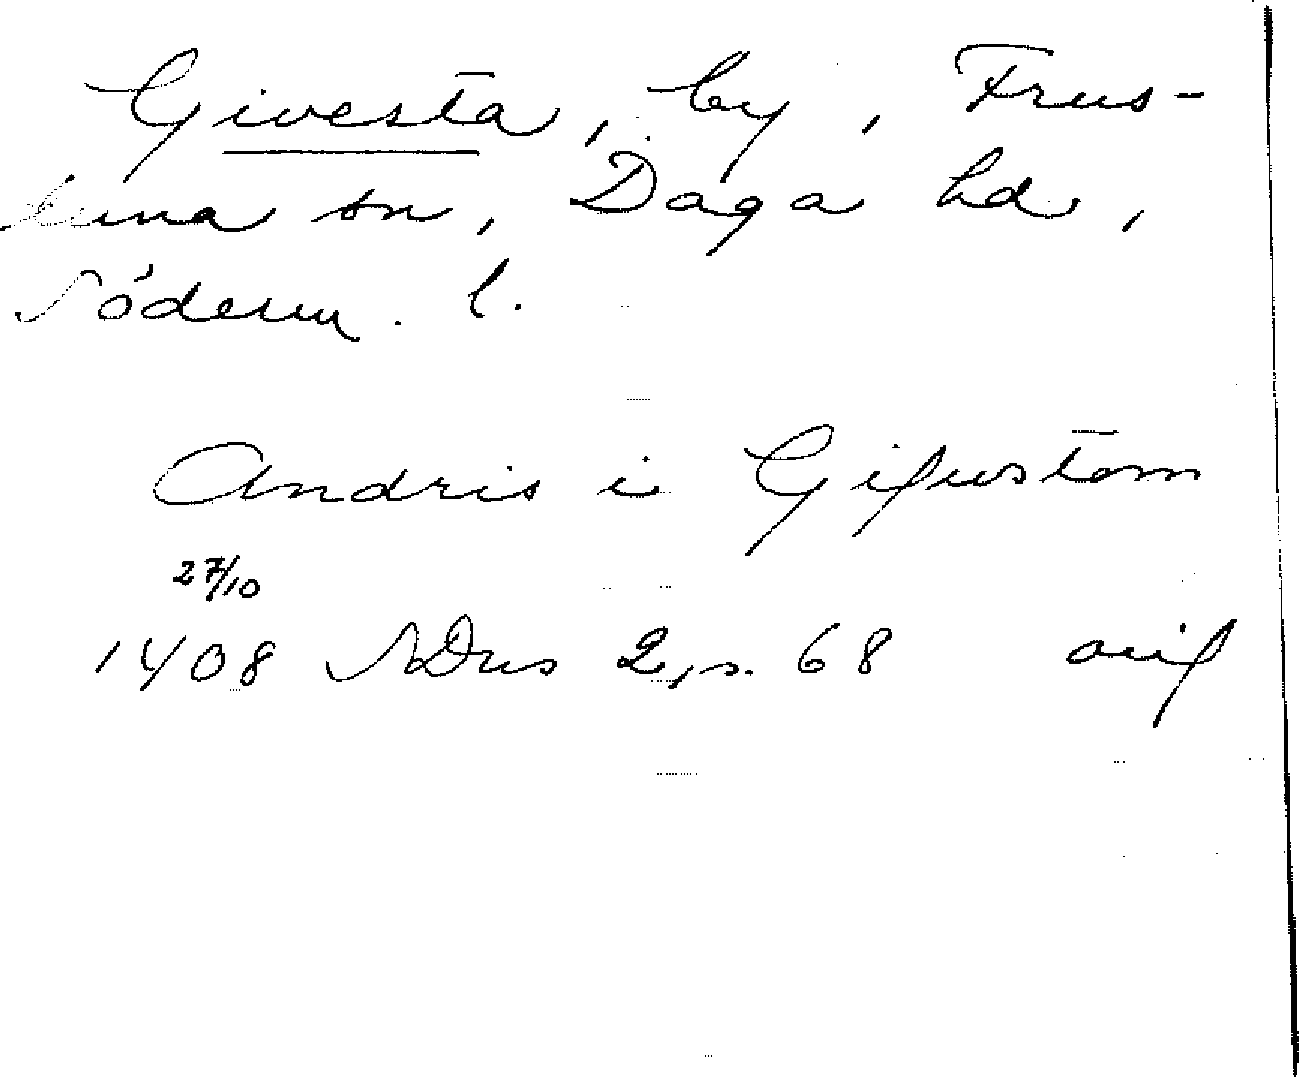 Givesta, by, Frus-
tuna sn, Daga hd,
Söderm. l.
Andris i Gifwstom
27/10
1408 SDns 2, s. 68 avif